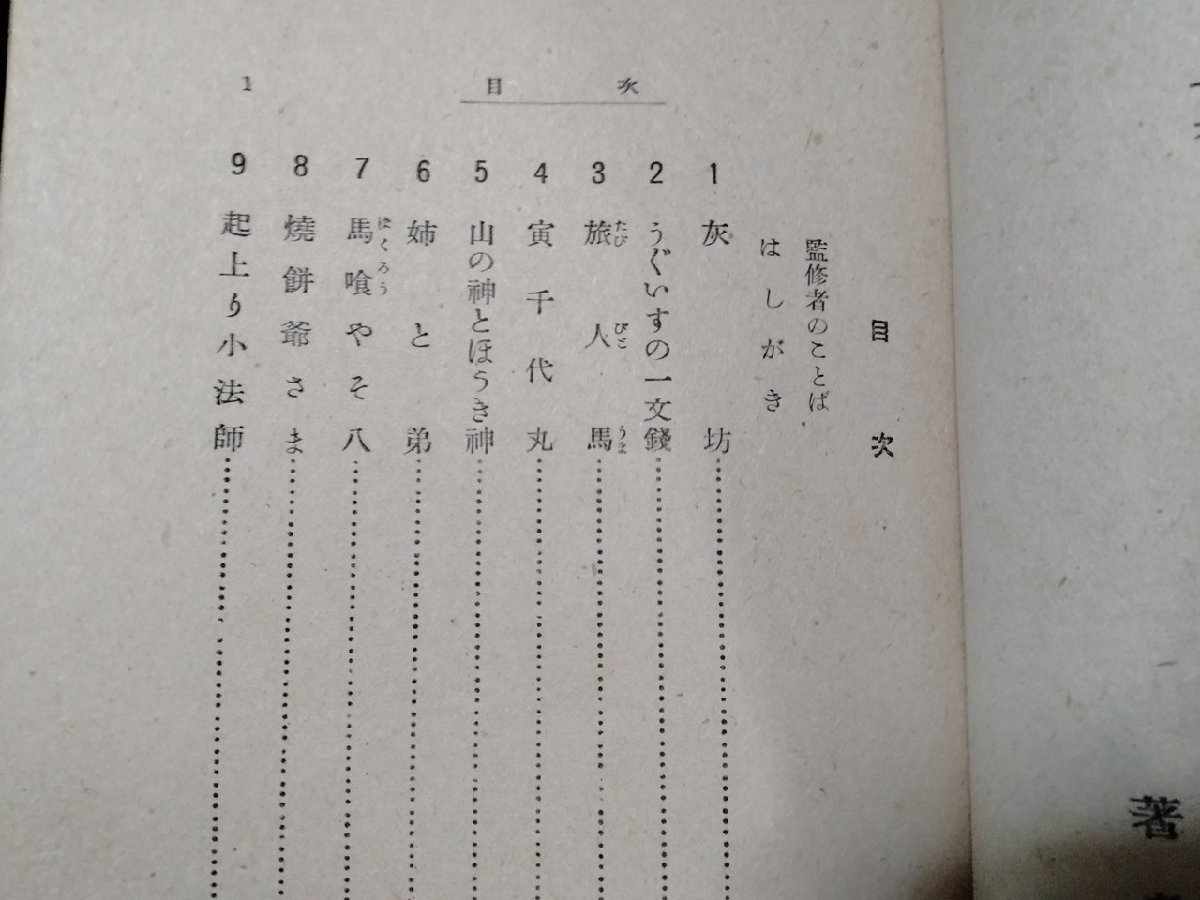 目次
1
目次
監修者のことば
はしがき
1 灰坊
2 うぐいすの一文錢
3 旅人馬
たびびとうま
4 寅千代丸
5 山の神とほうき神
6 姉と弟
7 馬喰やそ八
ばくろう
8 燒餅爺さま
9 起上り小法師
著